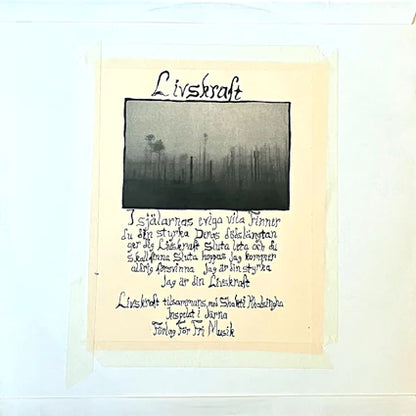 Livskraft
I själarnas eviga vila Finner
du din styrka Deras dödslängtan
ger dig Livskraft Sluta leta och du
skall finna Sluta hoppas Jag kommer
aldrig försvinna Jag är din styrka
Jag är din Livskraft
Livskraft tillsammans med Shakti Khalsingha
Inspelat i Järna
Förlag För Fri Musik